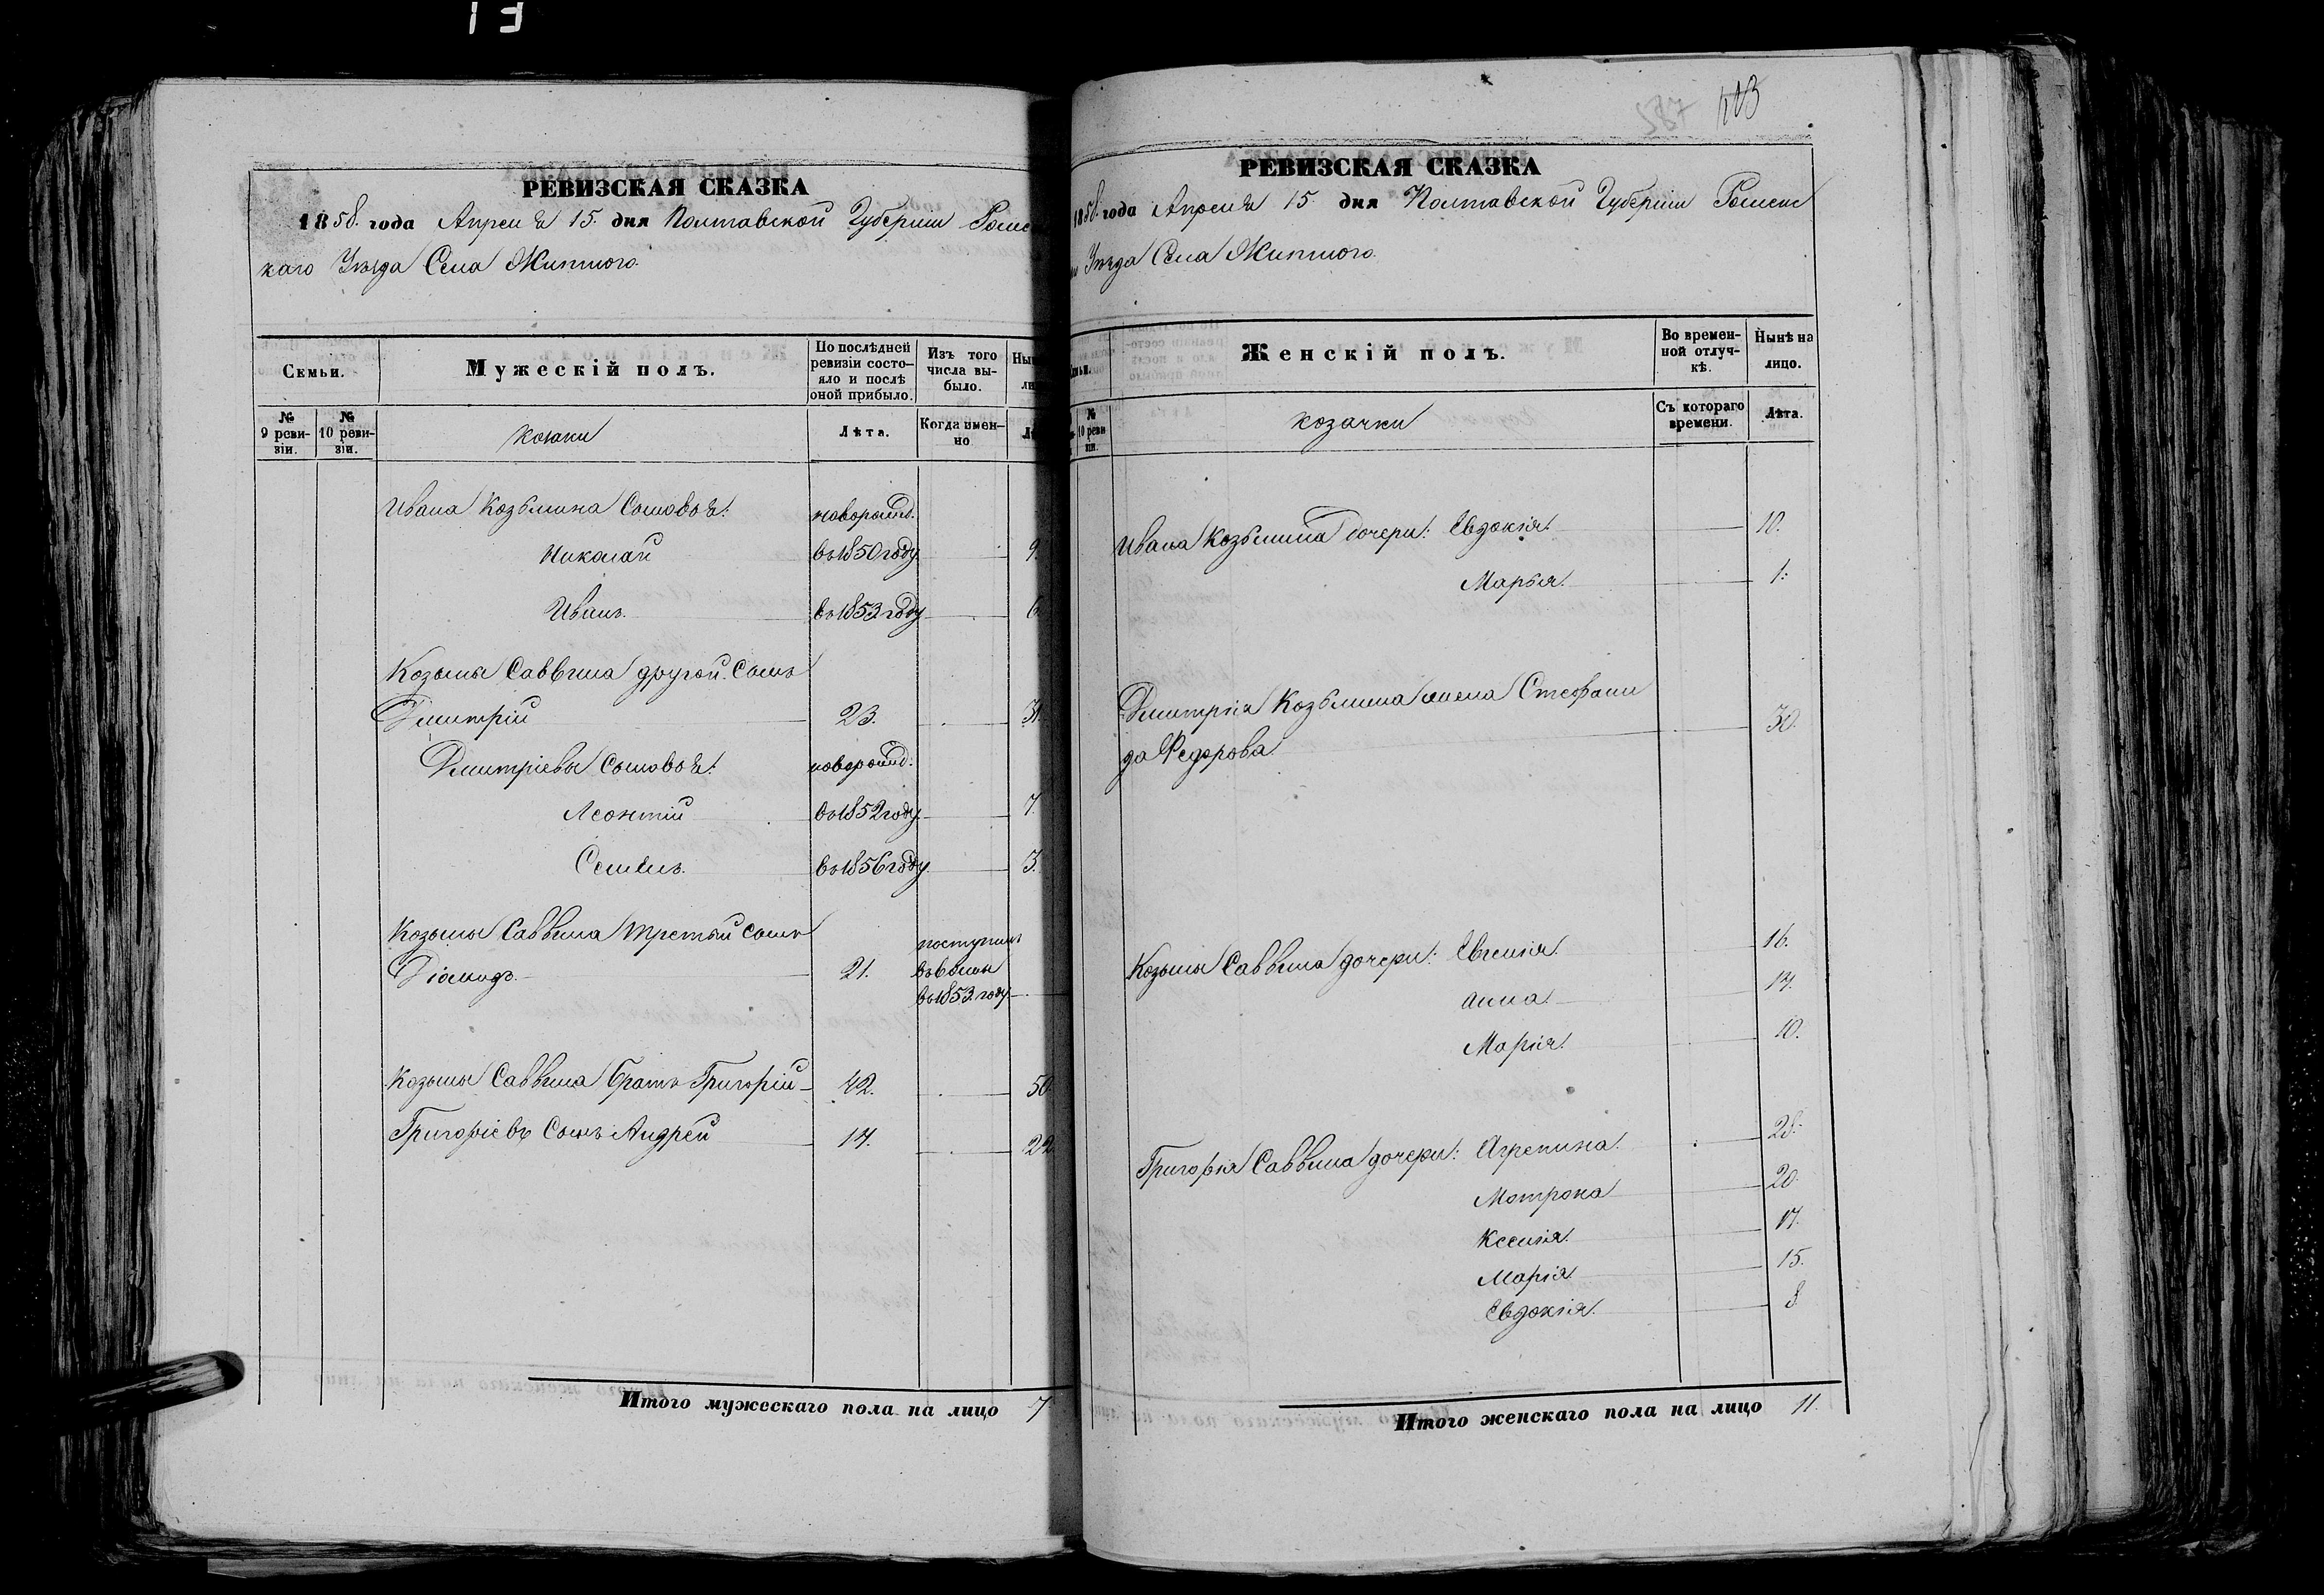 13
РЕВИЗСКАЯ СКАЗКА
1858. года Апреля 15. дня Полтавской Губерніи Роме
каго Уѣзда Села Житного.
Семьи.
Мужескій полъ.
По послѣдней ревизіи состояло и послѣ оной прибыло.
Изъ того числа выбыло.
№ 9 ревизіи.
№ 10 ревизіи.
козаки
Лѣта.
Когда именно
Ивана Козьмина Сыновья: новорожд.
Николай въ 1850 году 9.
Иванъ. въ 1853 году 6
Козьмы Саввина другой Сынъ
Дмитрій 23. 31.
Дмитріевы Сыновья: новорожд:
Леонтій въ 1852 году. 7.
Семенъ. въ 1856 году 3.
Козьмы Саввина третій Сынъ
Діомидъ. 21. поступилъ
въ 1853. году
Козьмы Саввина братъ Григорій 42. 50
Григоріевъ Сынъ Андрей 14. 22.
Итого мужескаго пола на лицо 7
587 113
РЕВИЗСКАЯ СКАЗКА
1858. года Апреля 15. дня Полтавской Губерніи Роменс
Уѣзда Села Житного.
Женскій полъ.
Во временной отлучкѣ.
Нынѣ на лицо.
№ 10 ревизіи.
козачки
Съ котораго времени.
Лѣта.
Ивана Козьмина дочери: Евдокія. 10.
Марья. 1:
Дмитрія Козьмина жена Степани
да Федорова 30.
Козьмы Саввина дочери: Евгенія. 16.
Анна. 14.
Марія. 10.
Григорія Саввина дочери: Агрепина. 28.
Мотрона 20.
Ксенія. 17.
Марія 15.
Евдокія. 8.
Итого женскаго пола на лицо 11.